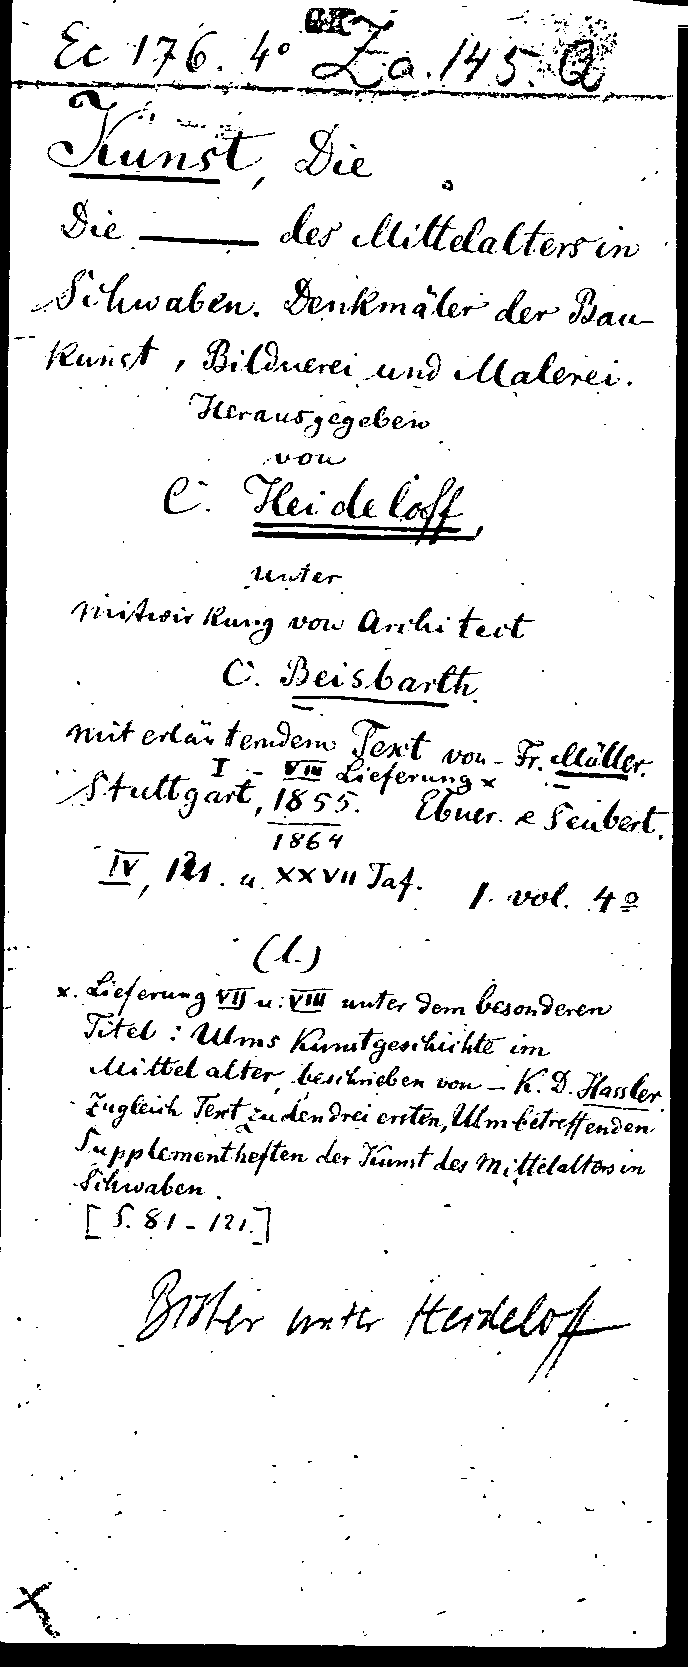 Ec 176. 4° Za. 145. Q
Kunst, Die
Die —— des Mittelalters in
Schwaben. Denkmäler der Bau-
kunst, Bildnerei und Malerei.
Herausgegeben
von
C. Heideloff,
unter
mitwirkung von Architect
C. Beisbarth.
mit erläuterndem Text von - Fr. Müller.
I - VIII Lieferung x
Stuttgart, 1855. Ebner & Seubert.
1864
IV, 121. u. XXVII Taf. 1. vol. 4°
(l.)
x. Lieferung VII u. VIII unter dem besonderen
Titel: Ulms Kunstgeschichte im
Mittelalter, beschrieben von - K. D. Hassler.
Zugleich Text zu den drei ersten, Ulm betreffenden
Supplementheften der Kunst des Mittelalters in
Schwaben.
[S. 81 - 121.]
Bisher unter Heideloff
x